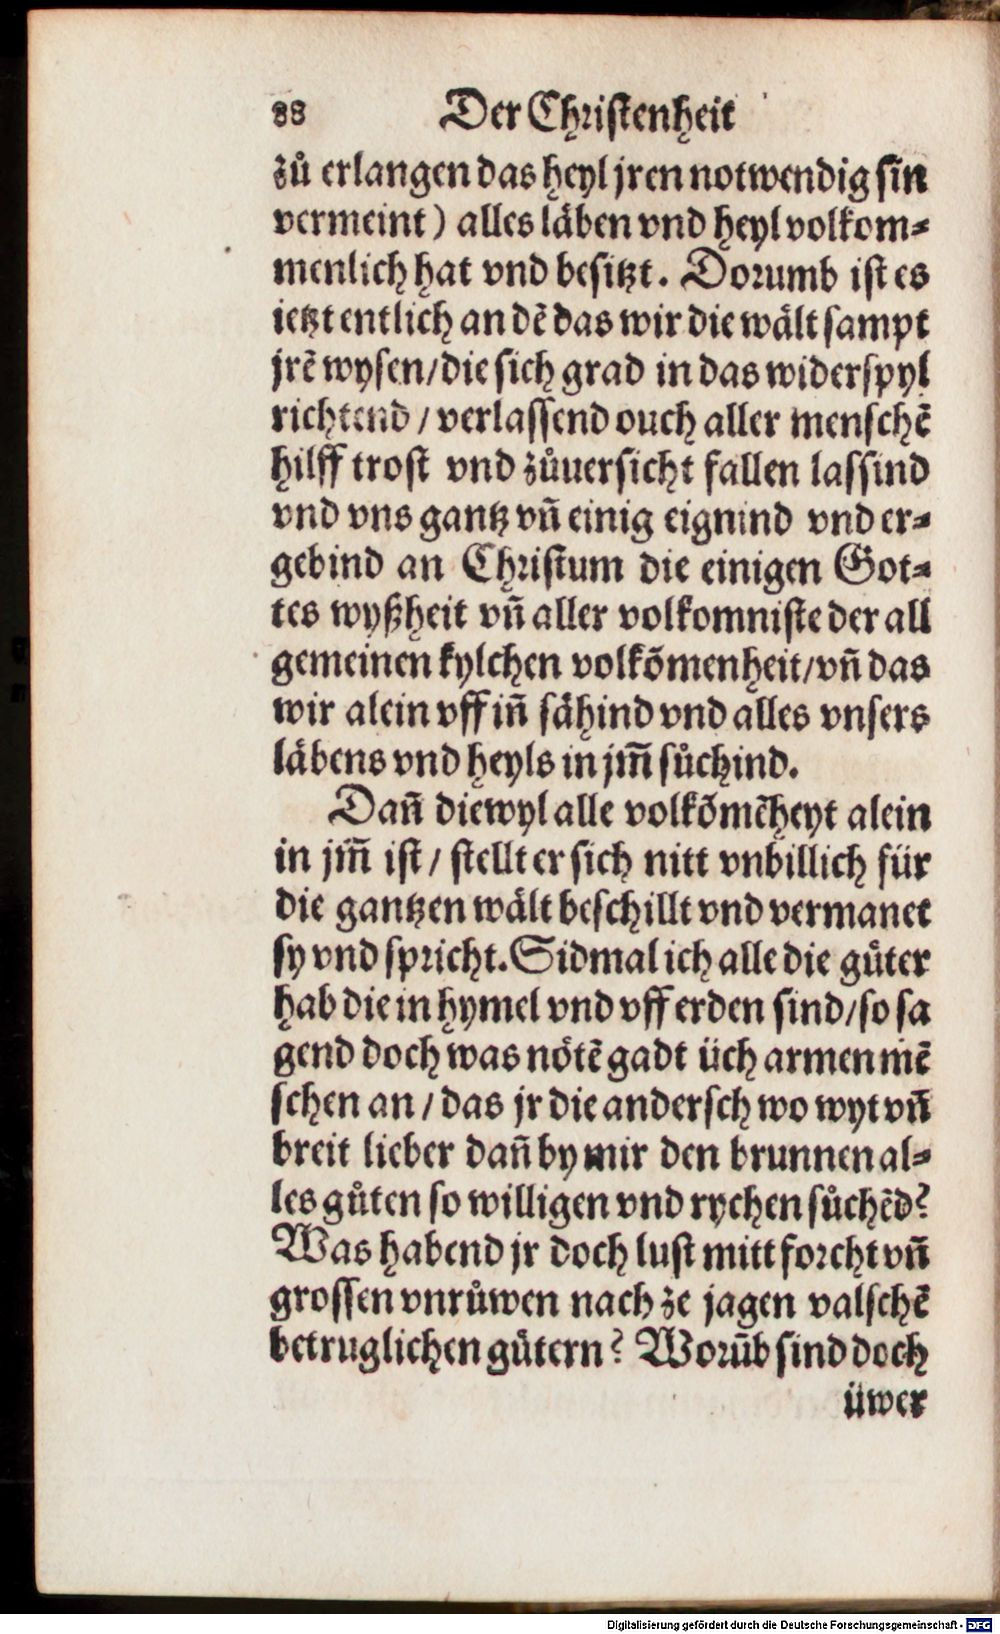 88 Der Christenheit
zů erlangen das heyl jren notwendig sin
vermeint) alles läben vnd heyl volkom⸗
menlich hat vnd besitzt. Dorumb ist es
ietzt entlich an dē das wir die wält sampt
jrē wysen/die sich grad in das widerspyl
richtend / verlassend ouch aller menschē
hilff trost vnd zůuersicht fallen lassind
vnd vns gantz vñ einig eignind vnd er⸗
gebind an Christum die einigen Got⸗
tes wyßheit vñ aller volkomniste der all
gemeinen kylchen volkõmenheit/vñ das
wir alein vff iñ sähind vnd alles vnsers
läbens vnd heyls in jm̃ sůchind.
Dañ diewyl alle volkõmēheyt alein
in jm̃ ist / stellt er sich nitt vnbillich für
die gantzen wält beschillt vnd vermanet
sy vnd spricht. Sidmal ich alle die güter
hab die in hymel vnd vff erden sind/so sa
gend doch was nötē gadt üch armen mē
schen an / das jr die andersch wo wyt vñ
breit lieber dañ by mir den brunnen al⸗
les gůten so willigen vnd rychen sůchēd?
Was habend jr doch lust mitt forcht vñ
grossen vnrůwen nach ze jagen valschē
betruglichen gütern? Worũb sind doch
üwer
Digitalisierung gefördert durch die Deutsche Forschungsgemeinschaft - DFG